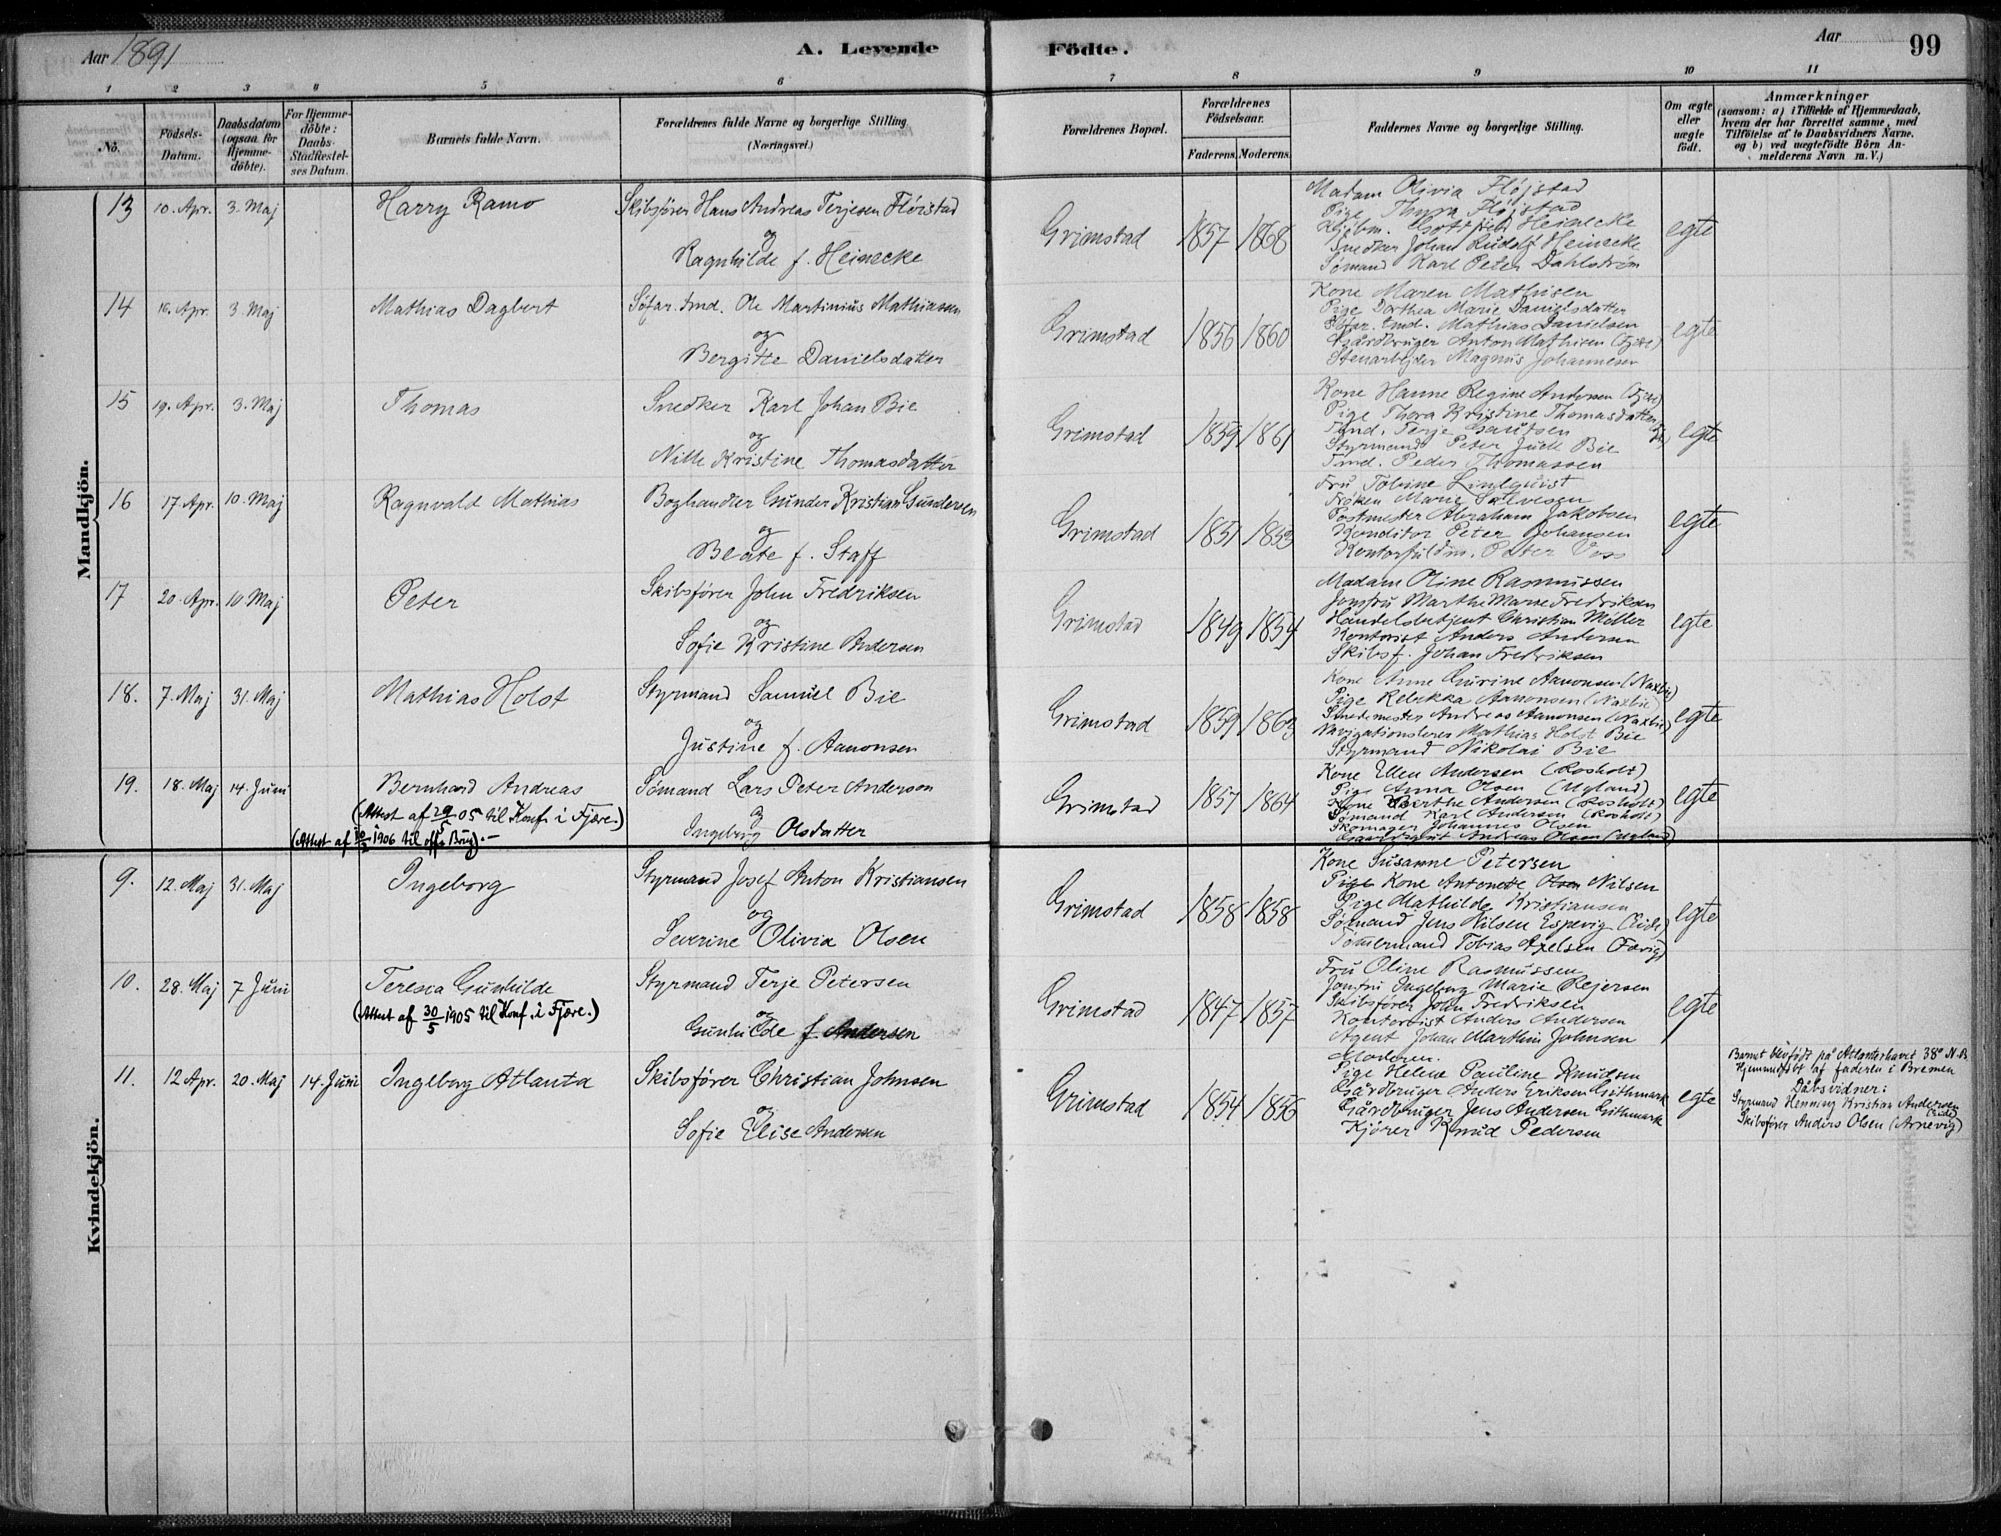 Aar 1891
A. Levende
Födte.
Aar
99
1 2 3 4 5 6 7 8 9 10 11
No.
Födsels-Datum.
Daabsdatum (ogsaa for Hjemme-döbte).
For Hjemme-döbte: Daabs-Stadfæstel-ses Datum.
Barnets fulde Navn.
Forældrenes fulde Navne og borgerlige Stilling. (Næringsvei.)
Forældrenes Bopæl.
Forældrenes Födselsaar.
Faderens. Moderens.
Faddernes Navne og borgerlige Stilling.
Om ægte eller uægte födt.
Anmærkninger
(saasom: a) i Tilfælde af Hjemmedaab, hvem der har forrettet samme, med Tilföielse af to Daabsvidners Navne, og b) ved uægtefödte Börn An-melderens Navn m. V.)
Mandkjön.
13 10. Apr. 3. Maj Harry Ramo
Skibsfører Hans Andreas Terjesen Fløistad
og
Ragnhilde f. Heinecke
Grimstad 1857 1868
Madam Olivia Fløjstad
Pige Thora Fløjstad
Kjøbm. Gottfred Heinecke
Snedker Johan Rudolf Heinecke
Sømand Karl Peter Dahlstrøm
egte
14 16. Apr. 3 Maj Mathias Dagbert
Søfar. tmd. Ole Martinius Mathiassen
og
Bergitte Danielsdatter
Grimstad 1856 1860
Kone Maren Mathisen
Pige Dorthea Marie Danielsdatter
Søfar. tmd. Mathias Danielsen
Gårdbruger Anton Mathisen (Fjære)
Stenarbejder Magnus Johannesen
egte
15 19. Apr. 3. Maj Thomas
Snedker Karl Johan Bie
og
Nille Kristine Thomasdatter
Grimstad 1859 1861
Kone Hanne Regine Andersen (Fjære)
Pige Thora Kristine Thomasdatter
Tmd. Terje Gautsen
Styrmand Peter Juell Bie
Tmd. Peder Thomassen
egte
16 17. Apr. 10. Maj Ragnvald Mathias
Boghandler Gunder Kristian Gundersen
og
Beate f. Staff
Grimstad 1851 1853
Fru Tobine Lindquist
Frøken Marie Salvesen
Postmester Abraham Jakobsen
Konditor Peter Johansen
Kontorfuldm. Peter Voss
egte
17 20. Apr. 10 Maj Peter
Skibsfører John Fredriksen
og
Sofie Kristine Andersen
Grimstad 1849 1854
Madam Oline Rasmussen
Jomfru Marthe Marie Fredriksen
Handelsbetjent Christian Møller
Kontorist Anders Andersen
Skibsf. Johan Fredriksen
egte
18. 7. Maj 31. Maj Mathias Holst
Styrmand Samuel Bie
og
Justine f. Aanonsen
Grimstad 1859 1863
Kone Anne Gurine Aanonsen (Naxbie)
Pige Rebekka Aanonsen (Naxbie)
Smedemester Andreas Aanonsen (Naxbie)
Navigationslærer Mathias Holst Bie
Styrmand Nikolai Bie
egte
19. 18. Maj 14. Juni Bernhard Andreas
(Attest af 05 til Konf. i Fjære.)
(Attest af 1906 til off. Brug). -
Sømand Lars Peter Anderson
og
Ingeborg Olsdatter
Grimstad 1857 1864
Kone Ellen Andersen (Rosholt)
Pige Anna Olsen (Ugland)
Kone Berthe Andersen (Rosholt)
Sømand Karl Andersen (Rosholt)
Skomager Johannes Olsen
Andreas Olsen (Ugland)
egte
Kvindekjön.
9. 12. Maj 31. Maj Ingeborg
Styrmand Josef Anton Kristiansen
og
Severine Olivia Olsen
Grimstad 1858 1858
Kone Susanne Petersen
Pige Kone Antonette Olsen Nilsen
Pige Mathilde Kristiansen
Sømand Jens Nilsen Espevig (Eide)
Tømmermand Tobias Axelsen (Færvig)
egte
10. 28. Maj 7 Juni Teresia Gunhilde
(Attest af 30/5 1905 til Konf. i Fjære.)
Styrmand Terje Petersen
og
Gunhilde f. Andersen
Grimstad 1847 1857
Fru Oline Rasmussen
Jomfru Ingeborg Marie Rejersen
Skibsfører John Fredriksen
Kontorist Anders Andersen
Agent Johan Martin Johnsen
egte
11. 12 Apr. 20. Maj 14. Juni Ingeborg Atlanta
Skibsfører Christian Johnsen
og
Sofie Elise Andersen
Grimstad 1854 1856
Moderen.
Pige Helene Pauline Knudsen
Gårdbruger Anders Eriksen Githmark
Gårdbruger Jens Andersen Githmark
Kjører Knud Pedersen
egte
Barnet blev født på Atlanterhavet 38° N.B
Hjemmedøbt af faderen i Bremen
Dåbsvidner:
Styrmand Henning Kristian Andersen (Eide)
Skibsfører Anders Olsen (Arnevig)